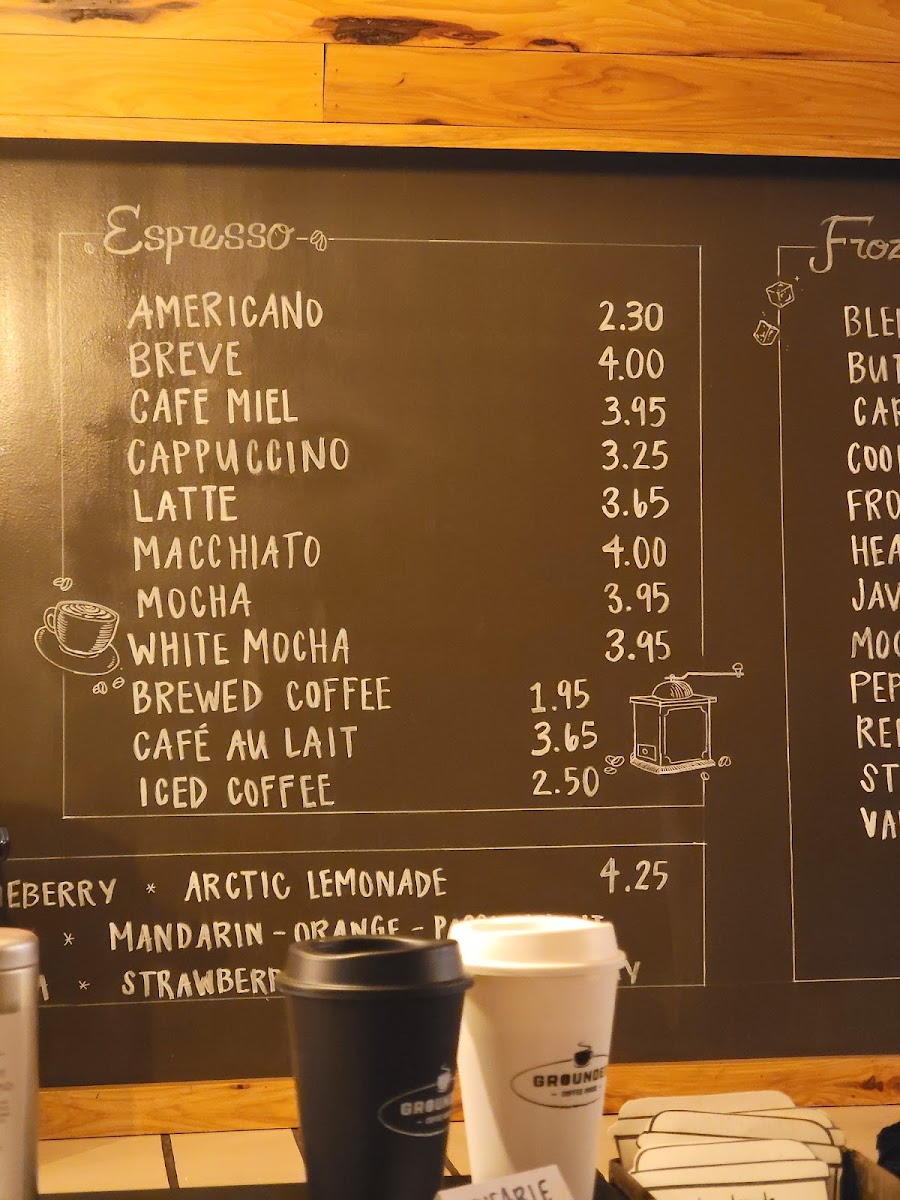 Espresso
AMERICANO 2.30
BREVE 4.00
CAFE MIEL 3.95
CAPPUCCINO 3.25
LATTE 3.65
MACCHIATO 4.00
MOCHA 3.95
WHITE MOCHA 3.95
BREWED COFFEE 1.95
CAFÉ AU LAIT 3.65
ICED COFFEE 2.50
EBERRY * ARCTIC LEMONADE 4.25
* MANDARIN - ORANGE -
* STRAWBERR
Froz
BLE
BUT
CAR
COO
FRO
HEA
JAV
MOC
PEP
RE
ST
VA
GROUNDE
COFFEE HOUSE
GROUN